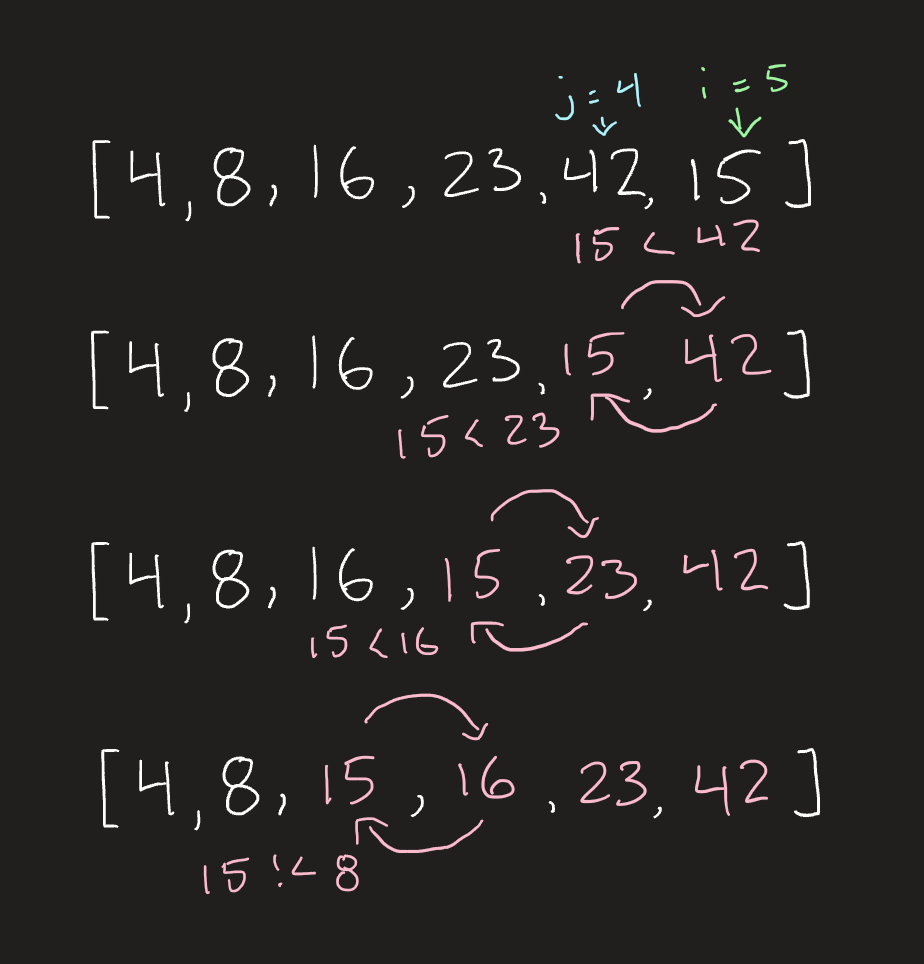 j = 4 i = 5
[4, 8, 16, 23, 42, 15]
15 < 42
[4, 8, 16, 23, 15, 42]
15 < 23
[4, 8, 16, 15, 23, 42]
15 < 16
[4, 8, 15, 16, 23, 42]
15 !< 8